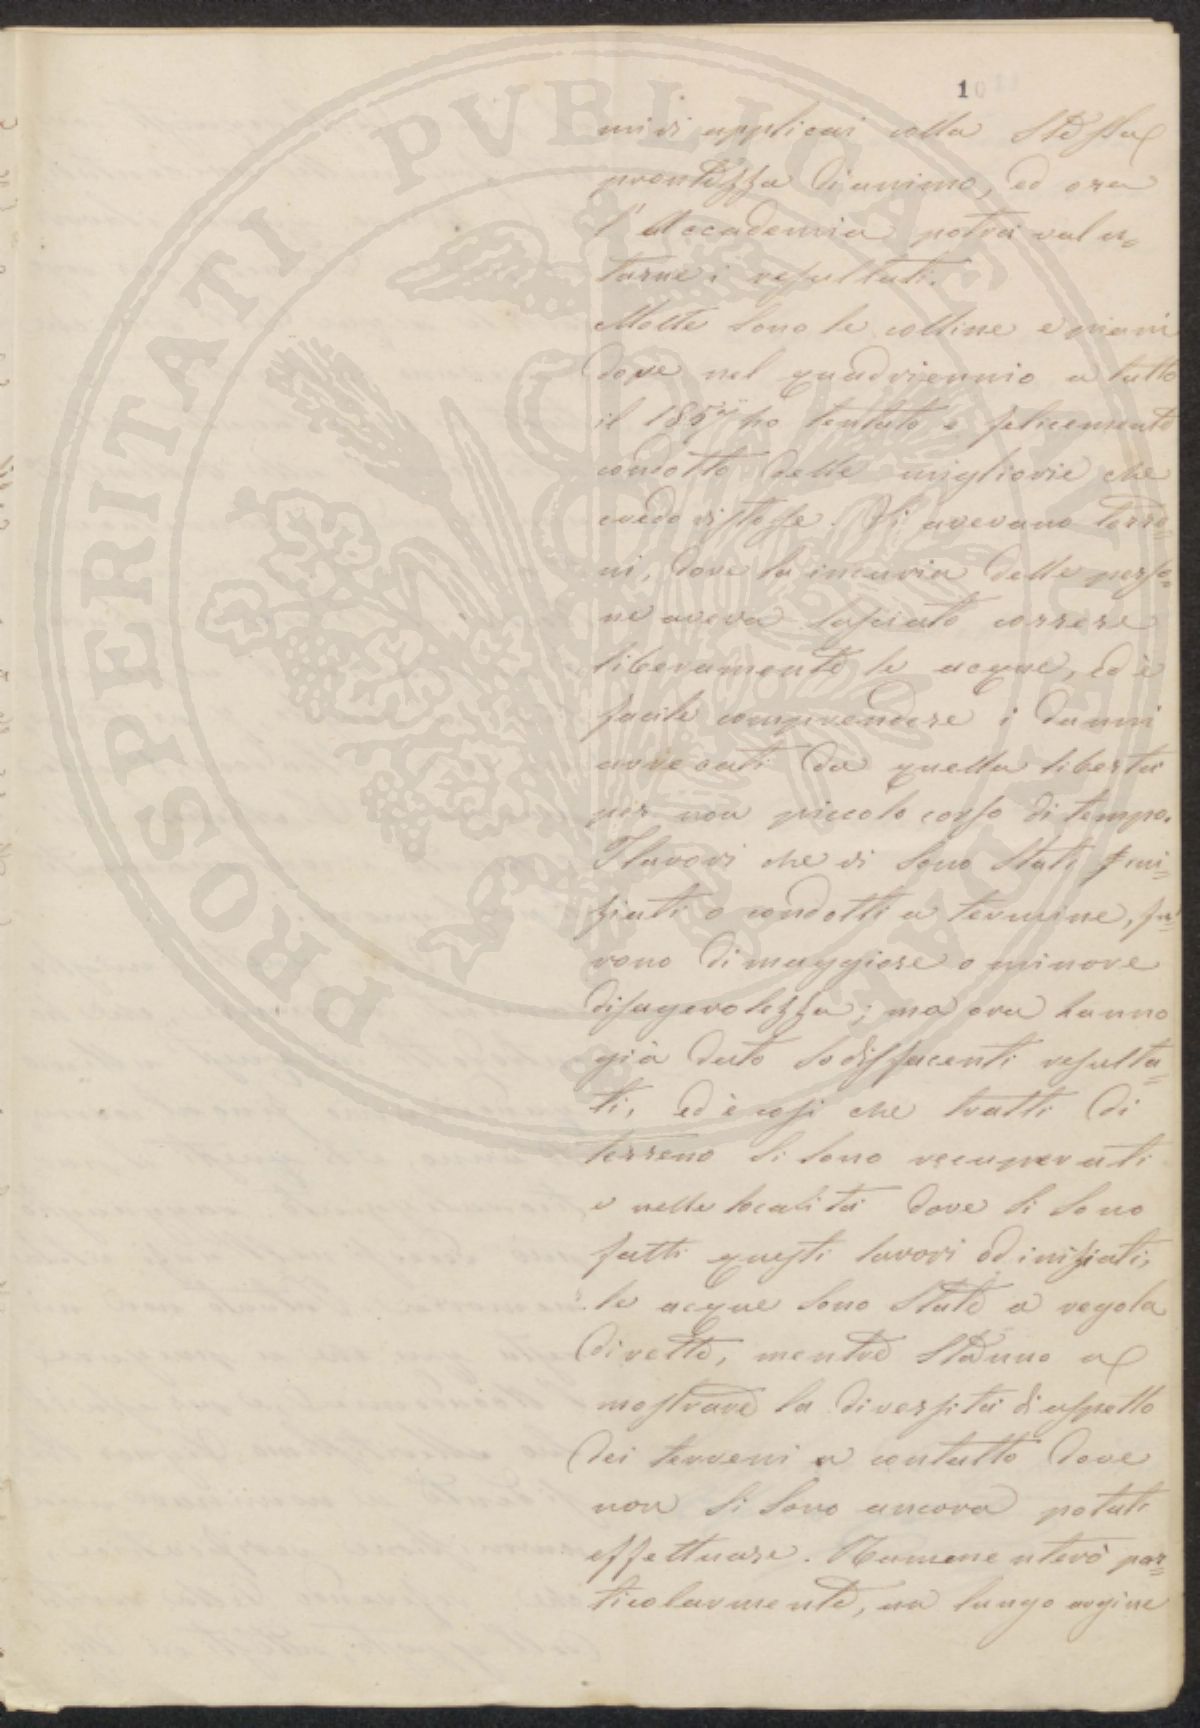 PROSPERITATI PVBLICAE AVGENDAE
1011
mi vi applicai colla stessa
prontezza di animo, ed ora
l'Accademia potrà valu=
tarne i resultati.
Molte sono le colline e piani
dove nel quadriennio a tutto
il 1857 ho tentato e felicemente
condotto delle migliorie che
credo vistose. Si avevano terre=
ni, dove la incuria delle perso=
ne aveva lasciato correre
liberamente le acque, ed è
facile comprendere i danni
arrecati da quella libertà
per non piccolo corso di tempo.
I lavori che vi sono stati ini=
ziati o condotti a termine, fu=
rono di maggiore o minore
disagevolezza; ma ora hanno
già dato sodisfacenti resulta=
ti, ed è così che tratti di
terreno si sono recuperati
e nelle località dove si sono
fatti questi lavori od iniziati,
le acque sono state a regola
dirette, mentre stanno a
mostrare la diversità di aspetto
dei terreni a contatto dove
non si sono ancora potuti
effettuare. Rammenterò par=
ticolarmente, un lungo argine